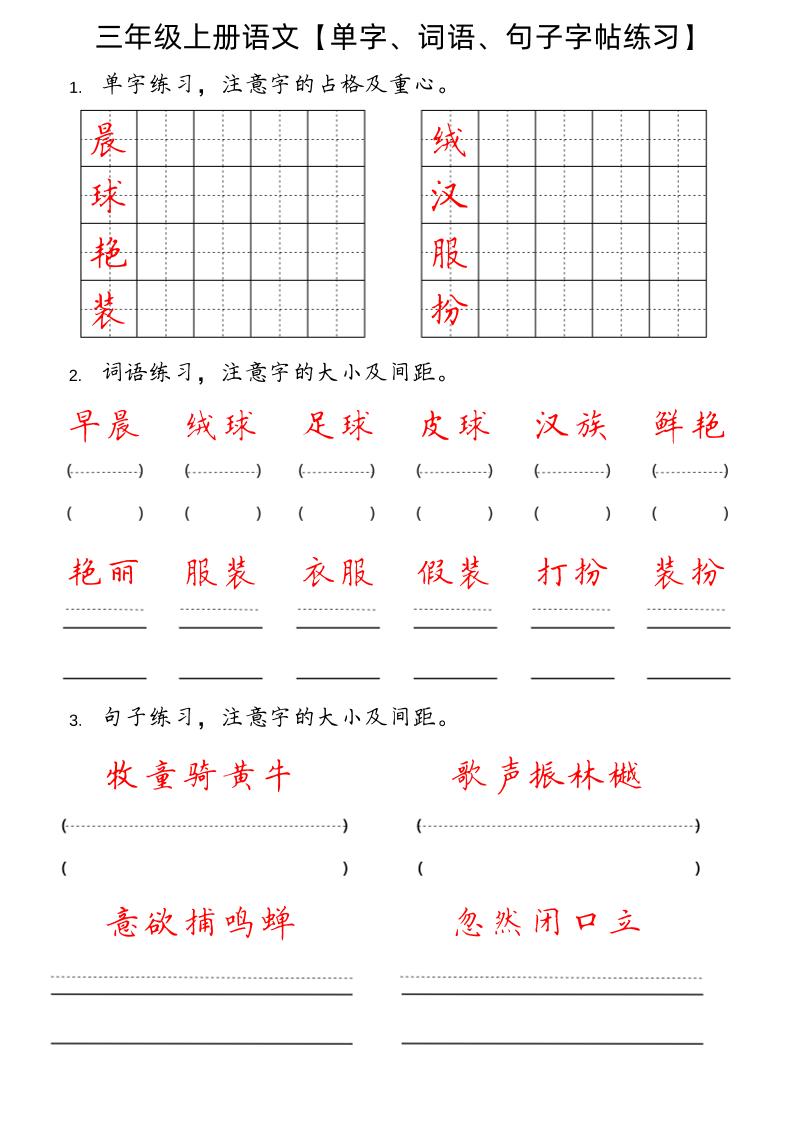 三年级上册语文【单字、词语、句子字帖练习】
1. 单字练习，注意字的占格及重心。
晨 绒
球 汉
艳 服
装 扮
2. 词语练习，注意字的大小及间距。
早晨 绒球 足球 皮球 汉族 鲜艳
( ) ( ) ( ) ( ) ( ) ( )
( ) ( ) ( ) ( ) ( ) ( )
艳丽 服装 衣服 假装 打扮 装扮
3. 句子练习，注意字的大小及间距。
牧童骑黄牛 歌声振林樾
( ) ( )
( ) ( )
意欲捕鸣蝉 忽然闭口立